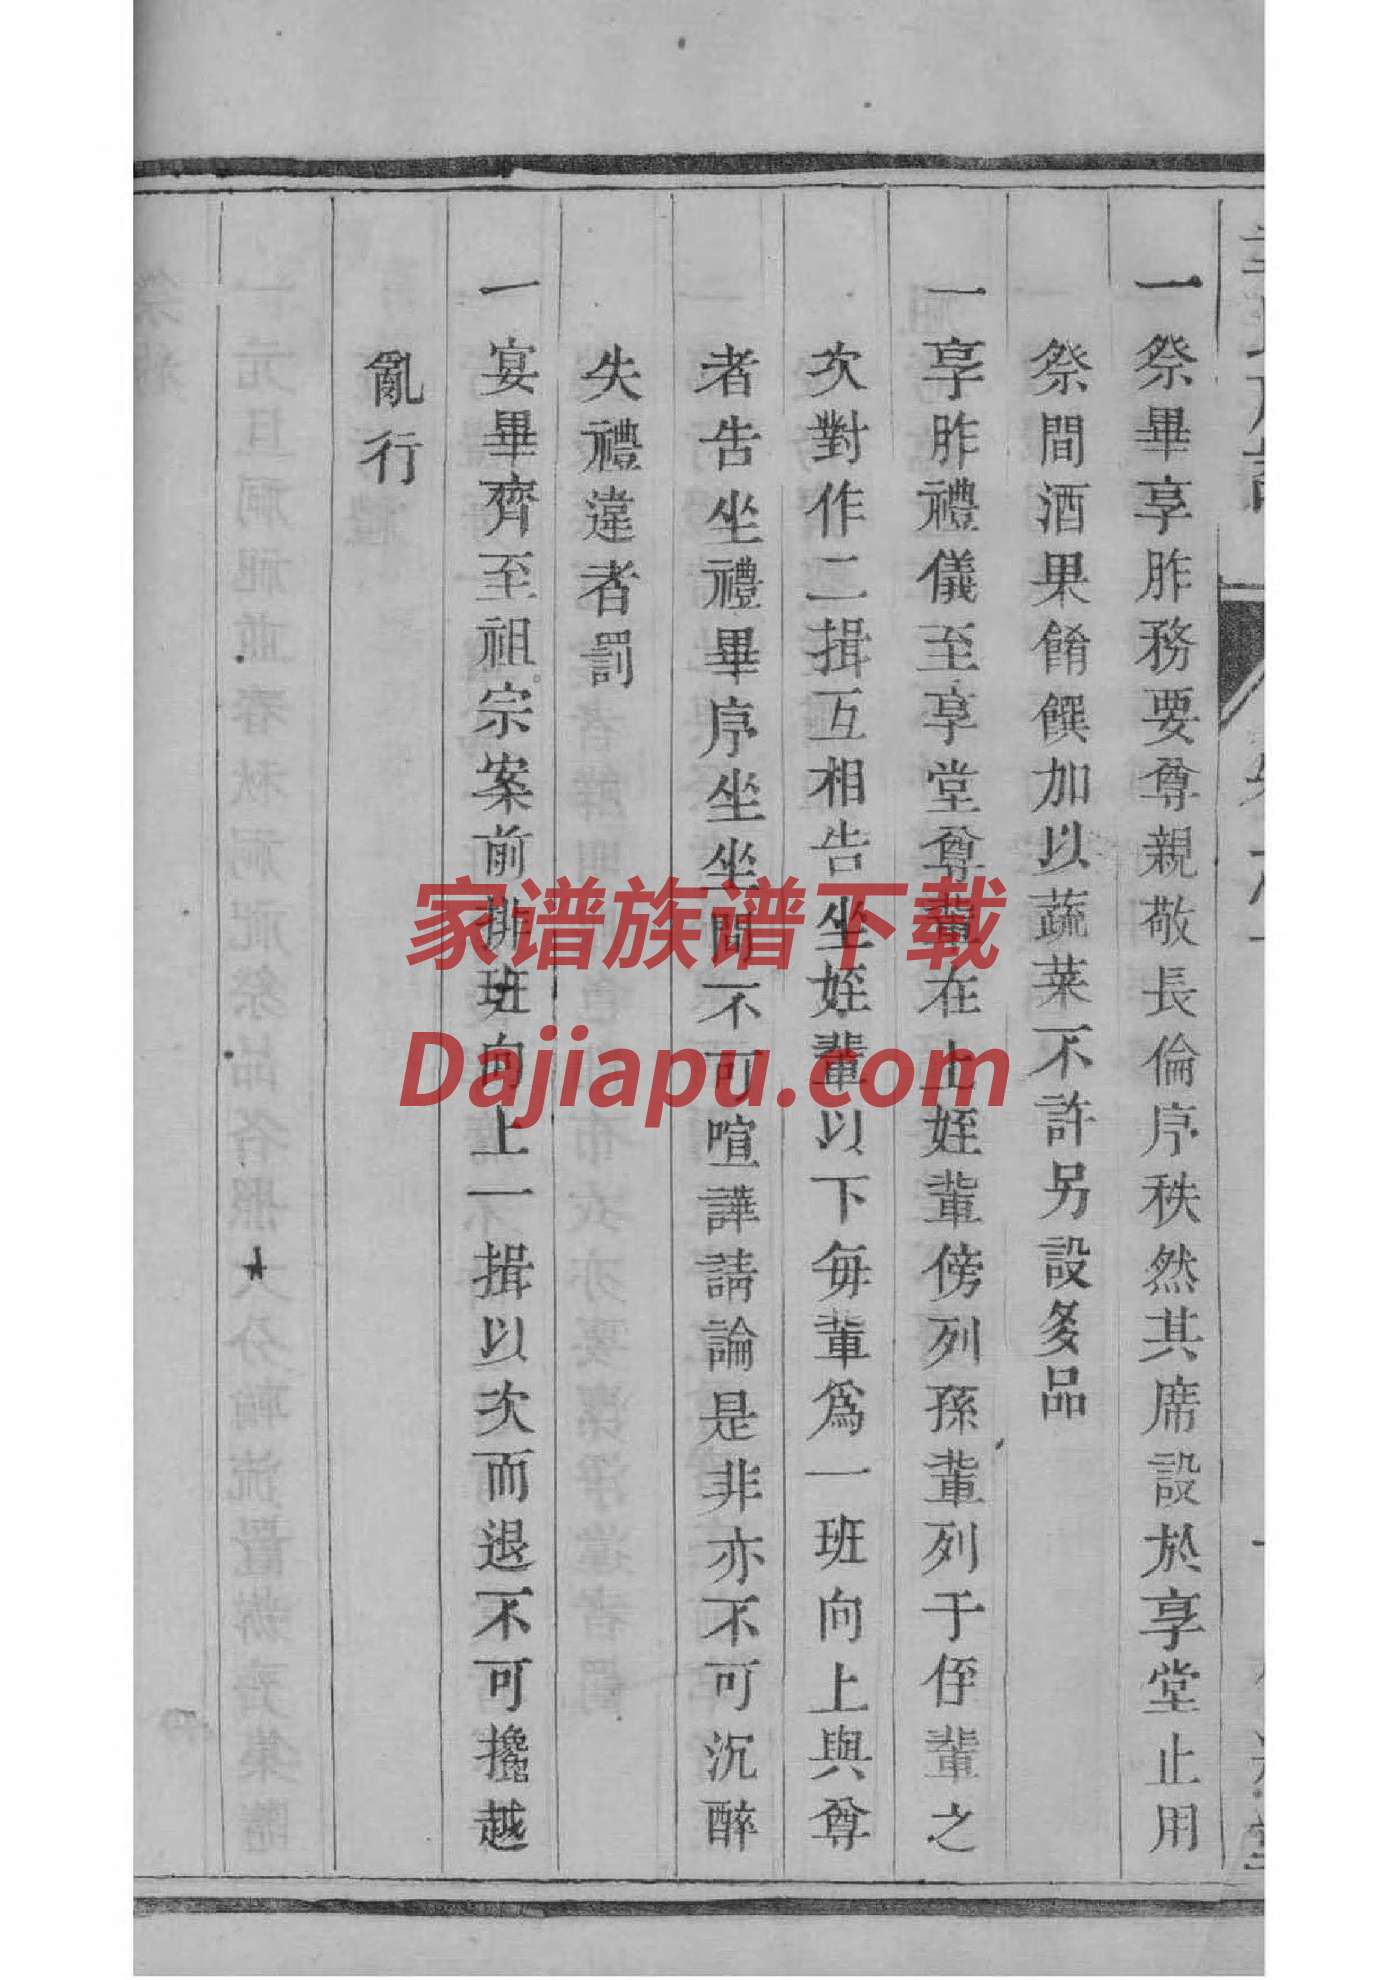 一祭畢享胙務要尊親敬長倫序秩然其席設於享堂止用
祭間酒果餚饌加以蔬菜不許另設多品
一享胙禮儀至享堂尊輩在上姪輩傍列孫輩列于侄輩之
次對作二揖互相告坐姪輩以下每輩爲一班向上與尊
者告坐禮畢序坐坐間不可喧譁請論是非亦不可沉醉
失禮違者罰
一宴畢齊至祖宗案前排班向上一揖以次而退不可攙越
亂行
家谱族谱下载
Dajiapu.com